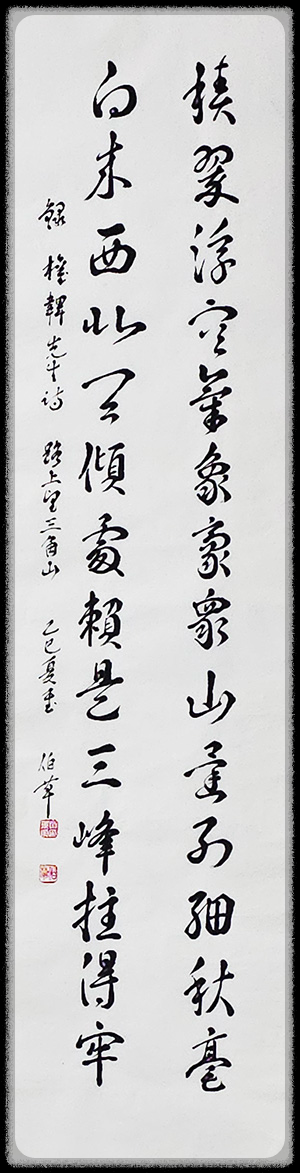 積翠浮空氣象豪衆山量列細秋毫
向來西北天傾處賴是三峰拄得牢
錄 權韠先生詩 路上望三角山 乙巳夏書 伯草